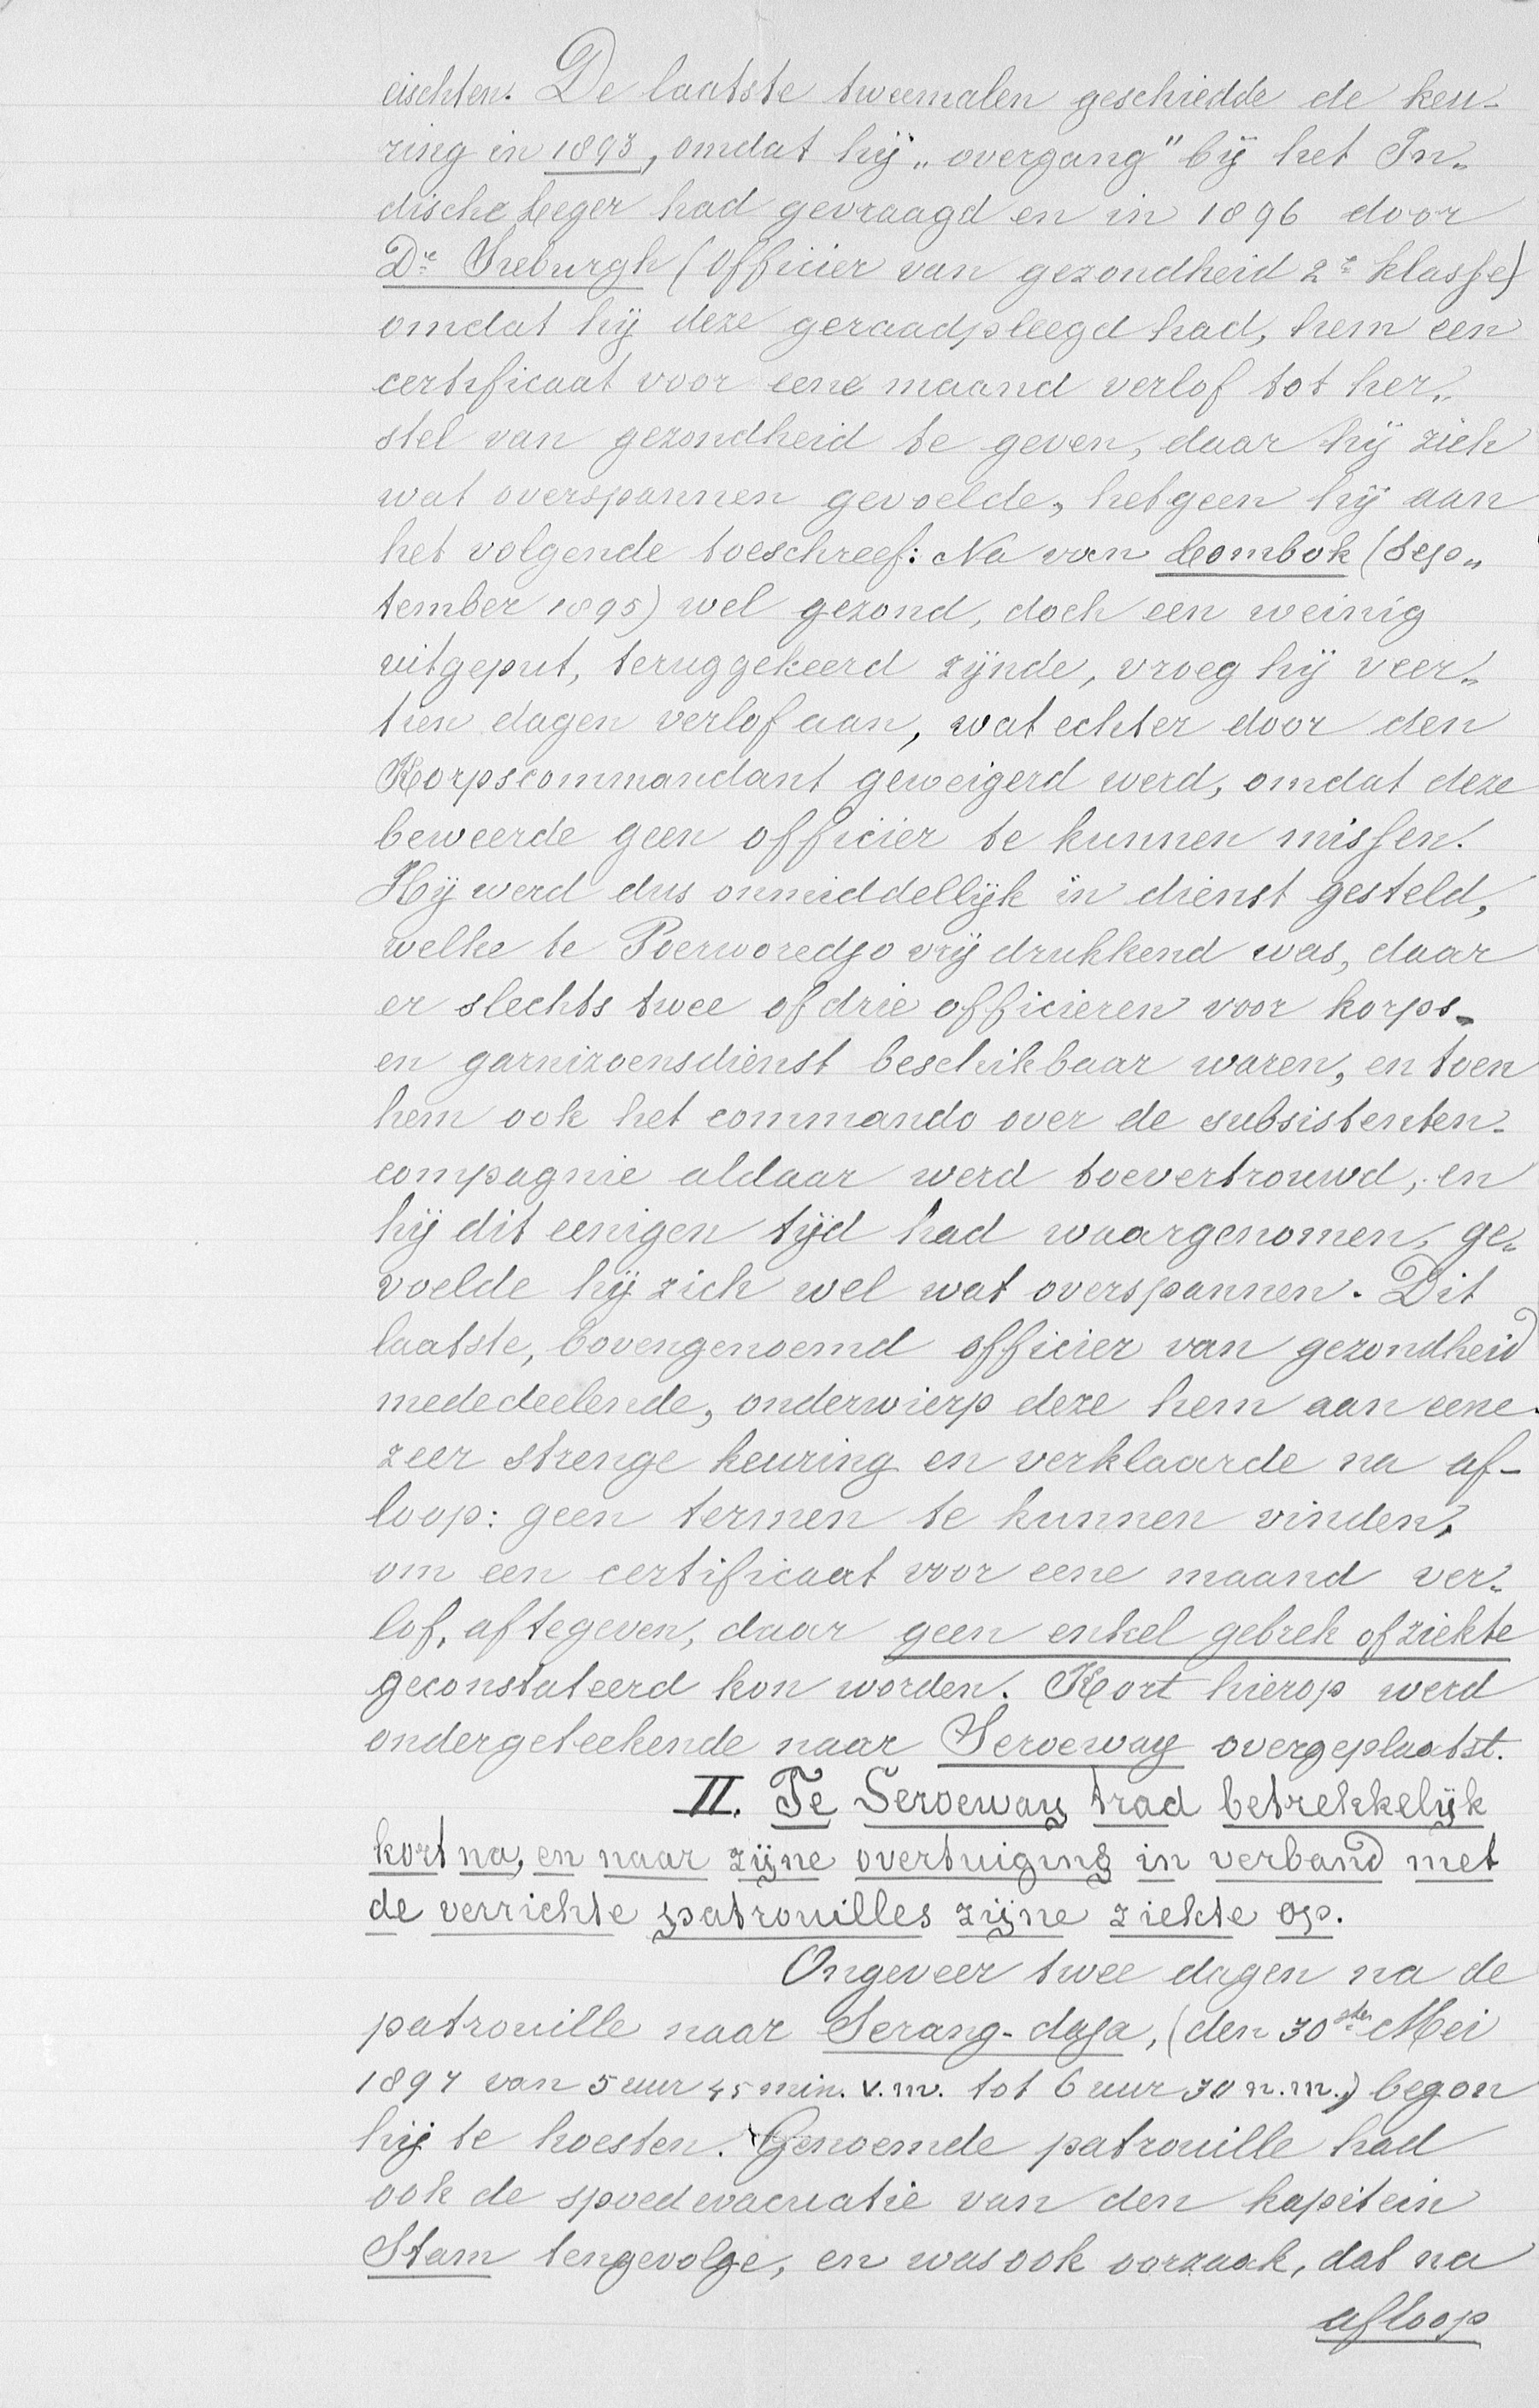 eischten. De laatste tweemalen geschiedde de keu-
ring in 1893, omdat hij „overgang" bij het In„
dische Leger had gevraagd en in 1896 door
Dr. Treburgh (Officier van gezondheid 2e klasse)
omdat hij deze geraadpleegd had, hem een
certificaat voor eene maand verlof tot her„
stel van gezondheid te geven, daar hij zich
wat overspannen gevoelde, hetgeen hij aan
het volgende toeschreef: Na van Lombok (Sep„
tember 1895) wel gezond, doch een weinig
uitgeput, teruggekeerd zijnde, vroeg hij veer„
tien dagen verlof aan, wat echter door den
Korpscommandant geweigerd werd, omdat deze
beweerde geen officier te kunnen missen.
Hij werd dus onmiddellijk in dienst gesteld,
welke te Poerworedjo vrij drukkend was, daar
er slechts twee of drie officieren voor korps-
en garnizoensdienst beschikbaar waren, en toen
hem ook het commando over de subsistenten-
compagnie aldaar werd toevertrouwd, en
hij dit eenigen tijd had waargenomen, ge„
voelde hij zich wel wat overspannen. Dit
laatste, bovengenoemd officier van gezondheid
mededeelende, onderwierp deze hem aan eene
zeer strenge keuring en verklaarde na af-
loop: geen termen te kunnen vinden,
om een certificaat voor eene maand ver„
lof, aftegeven, daar geen enkel gebrek of ziekte
geconstateerd kon worden. Kort hierop werd
ondergeteekende naar Seroeway overgeplaatst.
II. Te Seroeway trad betrekkelijk
kort na, en naar zijne overtuiging in verband met
de verrichte patrouilles zijne ziekte op.
Ongeveer twee dagen na de
patrouille naar Serang-daja, (den 30sten Mei
1897 van 5 uur 45 min. v.m. tot 6 uur 30 n.m.) begon
hij te hoesten. Genoemde patrouille had
ook de spoedevacuatie van den kapitein
Stam tengevolge, en was ook oorzaak, dat na
afloop